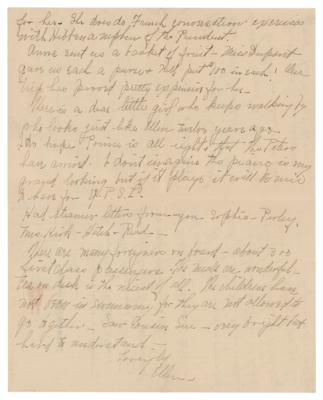 for her. She does do French conversation exercises
with Hibben a nephew of the President.
Anne sent us a basket of fruit - Miss
gave us each a purse & put $100 in each! Our
trip has proved pretty expensive for her.
There is a dear little girl who keeps walking by
who looks just like Ellen Taylor years ago.
So hope Prince is all right & that the Peters
have arrived. I don't imagine the piano is very
grand looking but if it plays it will be nice
to have for
Had steamer letters from - you. Sophia -
Mrs. Kirk -
There are many foreigners on board - about 300
first class passengers. The meals are wonderful -
Tea on deck is the nicest of all. The children have
not been in swimming for they are not allowed to
go together - Saw Cousin Sue - very bright but
hard to understand -
Lovingly
Ellen